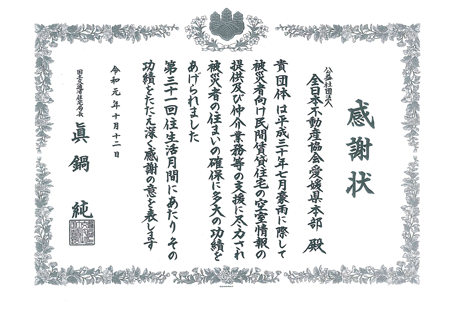 感謝状
公益社団法人
全日本不動産協会愛媛県本部 殿
貴団体は平成三十年七月豪雨に際して
被災者向け民間賃貸住宅の空室情報の
提供及び仲介業務等の支援に尽力され
被災者の住まいの確保に多大の功績を
あげられました
第三十一回住生活月間にあたり その
功績をたたえ深く感謝の意を表します
令和元年十月十二日
国土交通省住宅局長
眞鍋 純